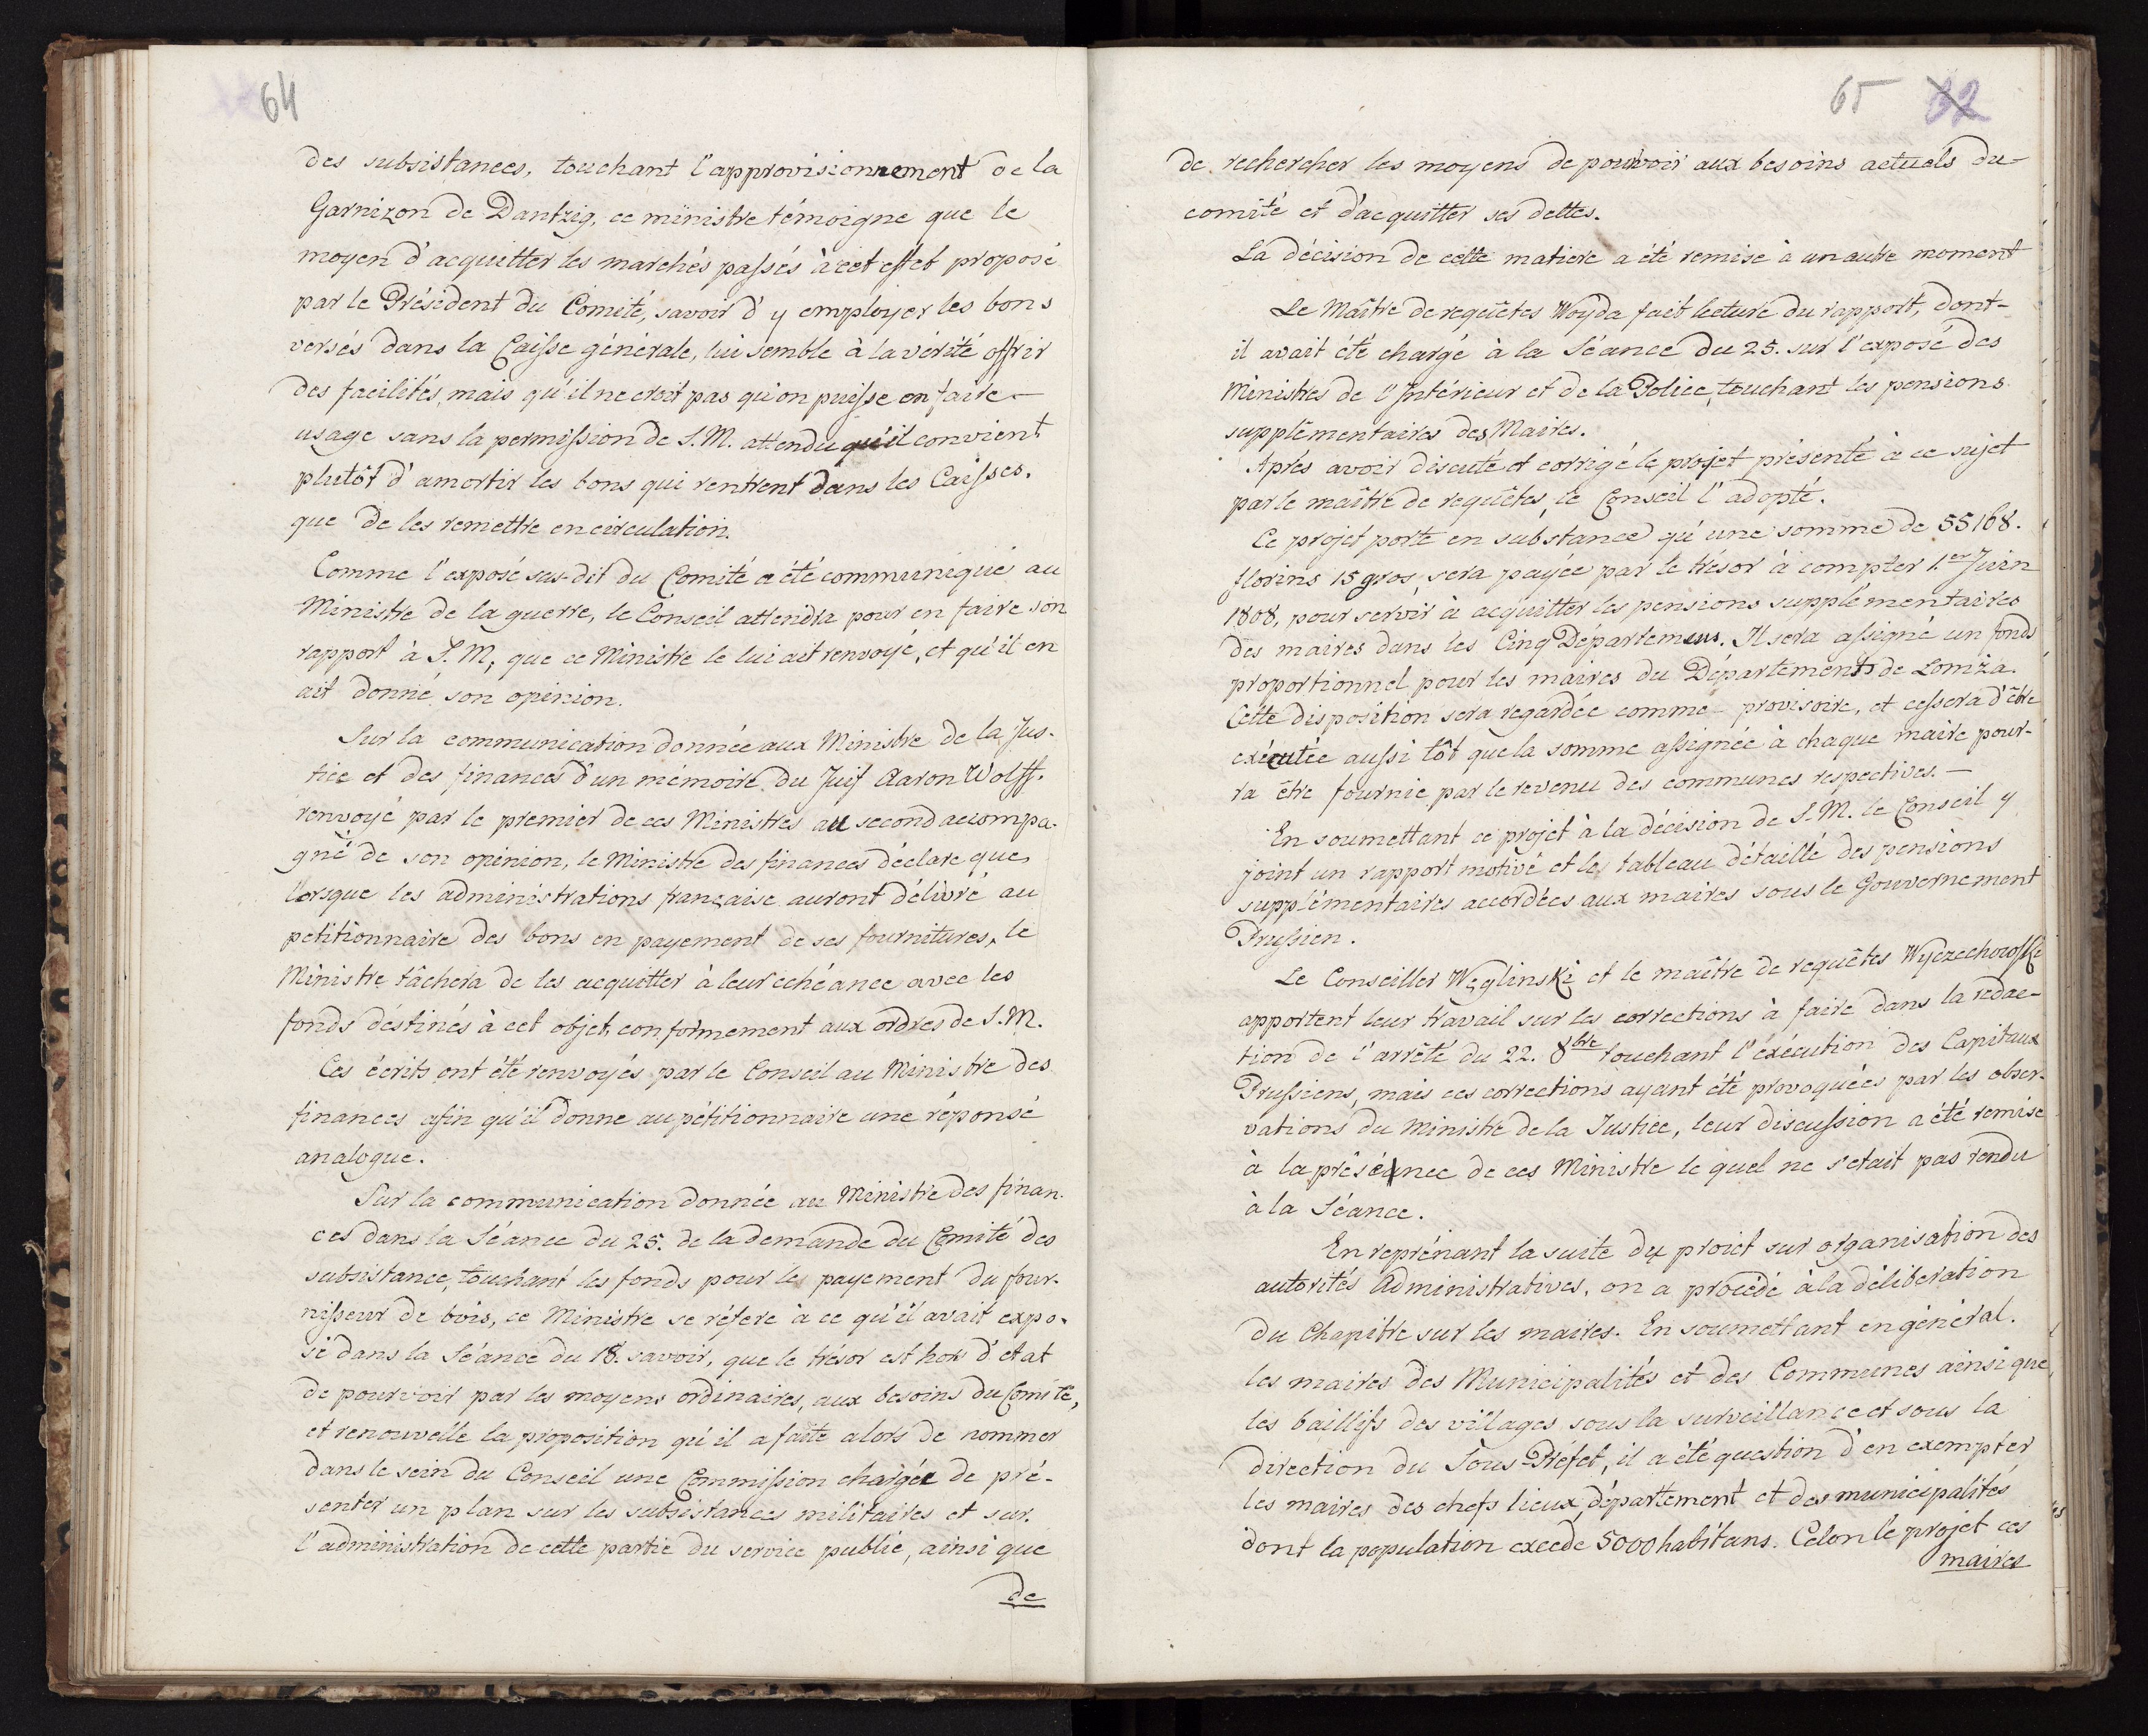 64
des subsistances, touchant l'approvisionnement de la
Garnizon de Dantzig, ce ministre témoigne que le
moyen d'acquitter les marchés passés à cet effet proposé
par le Président du Comité, savoir d'y employer les bons
versés dans la Caisse générale, lui semble à la vérité offrir
des facilités, mais qu'il ne croit pas qu'on puisse en faire
usage sans la permission de S. M. attendu qu'il convient
plutôt d'amortir les bons qui rentrent dans les Caisses,
que de les remettre en circulation.
Comme l'exposé sus-dit du Comité a été communiqué au
Ministre de la guerre, le Conseil attendra pour en faire son
rapport à S. M, que ce Ministre le lui ait renvoyé, et qu'il en
ait donné son opinion.
Sur la communication donnée aux Ministre de la Jus-
tice et des finances d'un mémoire du Juif Aaron Wolff.
renvoyé par le premier de ces Ministres au second accompa-
gné de son opinion, le Ministre des finances déclare que,
lorsque les administrations française auront délivré au
petitionnaire des bons en payement de ses fournitures, le
Ministre tâchera de les acquitter à leur echéance avec les
fonds destinés à cet objet, conformement aux ordres de S. M.
Ces écrits ont été renvoyés par le Conseil au Ministre des
finances afin qu'il donne au pétitionnaire une réponse
analogue.
Sur la communication donnée au Ministre des finan-
ces dans la Séance du 25. de la demande du Comité des
subsistance, touchant les fonds pour le payement du four-
nisseur de bois, ce Ministre se réfere à ce qu'il avait expo-
sé dans la Séance du 18. savoir, que le trésor est hors d'etat
de pourvoir par les moyens ordinaires, aux besoins du Comité,
et renouvelle la proposition qu'il a faite alors de nommer
dans le sein du Conseil une Commission chargée de pré-
senter un plan sur les subsistances militaires et sur
l'administration de cette partie du service public, ainsi que
de
65 32
de rechercher les moyens de pourvoir aux besoins actuels du
comité et d'acquitter ses dettes.
La décision de cette matiere a été remise à un autre moment
Le Maître de requêtes Woyda fait lecture du rapport, dont
il avait été chargé à la Séance du 25. sur l'exposé des
Ministres de l'Intérieur et de la Police, touchant les pensions
supplémentaires des Maires.
Après avoir discuté et corrigé le projet présenté à ce sujet
par le maître de requêtes, le Conseil l'adopté.
Ce projet porte en substance qu'une somme de 55168.
florins 15 gros, sera payée par le trésor à compter 1.er Juin
1808, pour servir à acquitter les pensions supplémentaires
des maires dans les Cinq Départemens. Il sera assigné un fonds
proportionnel pour les maires du Département de Lomża.
Cette disposition sera regardée comme provisoire, et cessera d'être
exécutée aussi tôt que la somme assignée à chaque maire pour-
ra être fournie par le revenu des communes respectives.
En soumettant ce projet à la décision de S. M. le Conseil y
joint un rapport motivé et le tableau détaillé des pensions
supplémentaires accordées aux maires sous le Gouvernement
Prussien.
Le Conseiller Węglinski et le maître de requêtes Wyczechowski
apportent leur travail sur les corrections à faire dans la redac-
tion de l'arrêté du 22. 8bre touchant l'éxécution des Capitaux
Prussiens, mais ces corrections ayant été provoquées par les obser-
vations du Ministre de la Justice, leur discussion a été remise
à la présence de ces Ministre le quel ne s'etait pas rendu
à la Séance.
En reprénant la suite du projet sur organisation des
autorités Administratives, on a procédé à la déliberation
du Chapitre sur les maires. En soumettant en général.
les maires des Municipalités et des Communes ainsi que,
les baillifs des villages sous la surveillance et sous la
direction du Sous-Préfet, il a été question d'en exempter
les maires des chefs lieux, département et des municipalités
dont la population excede 5000 habitans. Celon le projet ces
maires